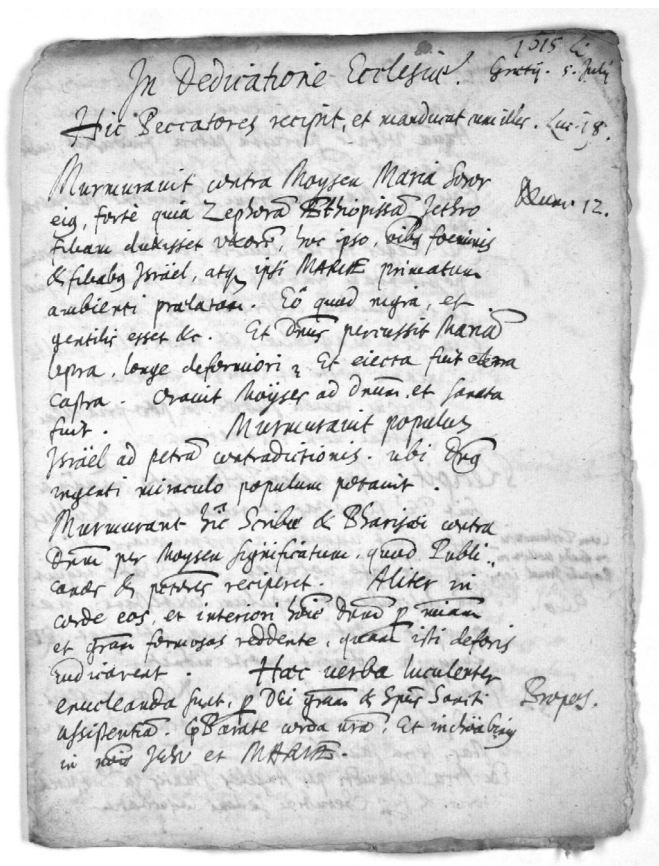 1615
In Dedicatione Ecclesiæ. Gratij. 5. July
Hic Peccatores recipit, et manducat cum illis. Luc. 15.
Murmuravit contra Moysen Maria soror Num. 12.
eig, fortè quia Zephorā Æthiopissā Jethro
filiam duxisset uxorē, hoc ipso, oībg foeminis
& filiabg Israël, atq; ipsi MARIÆ primatum
ambienti prælatam. Eò quod nigra, et
gentilis esset &c. Et Dnus percussit Mariā
lepra, longe deformiori; Et eiecta fuit extra
castra. Oravit Moÿses ad Dnum, et sanata
fuit. Murmuravit populus
Israël ad petrā contradictionis. ubi Dns
ingenti miraculo populum potavit.
Murmurant hîc Scribæ & Pharisæi contra
Dnum per Moysen significatum, quod Publi
canos & pctores reciperet. Aliter in
corde eos, et interiori hoīe Dnum p miam
et gram formosos reddente, quam isti deforis
iudicarent. Hæc verba luculenter
enucleanda sunt, p Dei gram & Spus Sancti Propos.
assistentiā. Pparate corda vra. Et inchoabimg
in noīe JESU et MARIÆ.